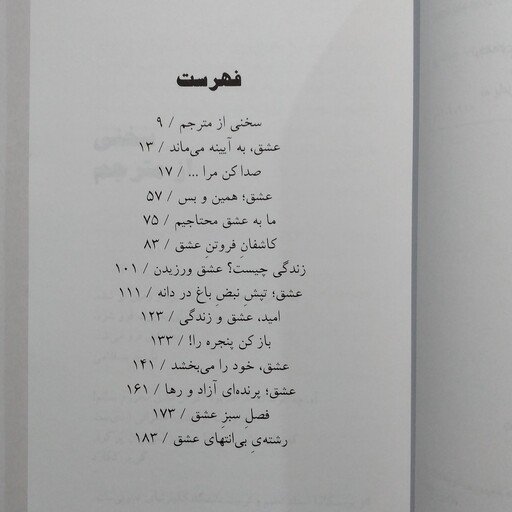 فهرست
سخنی از مترجم / ۹
عشق، به آیینه می‌ماند / ۱۳
صدا کن مرا ... / ۱۷
عشق؛ همین و بس / ۵۷
ما به عشق محتاجیم / ۷۵
کاشفانِ فروتنِ عشق / ۸۳
زندگی چیست؟ عشق ورزیدن / ۱۰۱
عشق؛ تپشِ نبضِ باغ در دانه / ۱۱۱
امید، عشق و زندگی / ۱۲۳
باز کن پنجره را! / ۱۳۳
عشق، خود را می‌بخشد / ۱۴۱
عشق؛ پرنده‌ای آزاد و رها / ۱۶۱
فصلِ سبزِ عشق / ۱۷۳
رشته‌یِ بی‌انتهای عشق / ۱۸۳